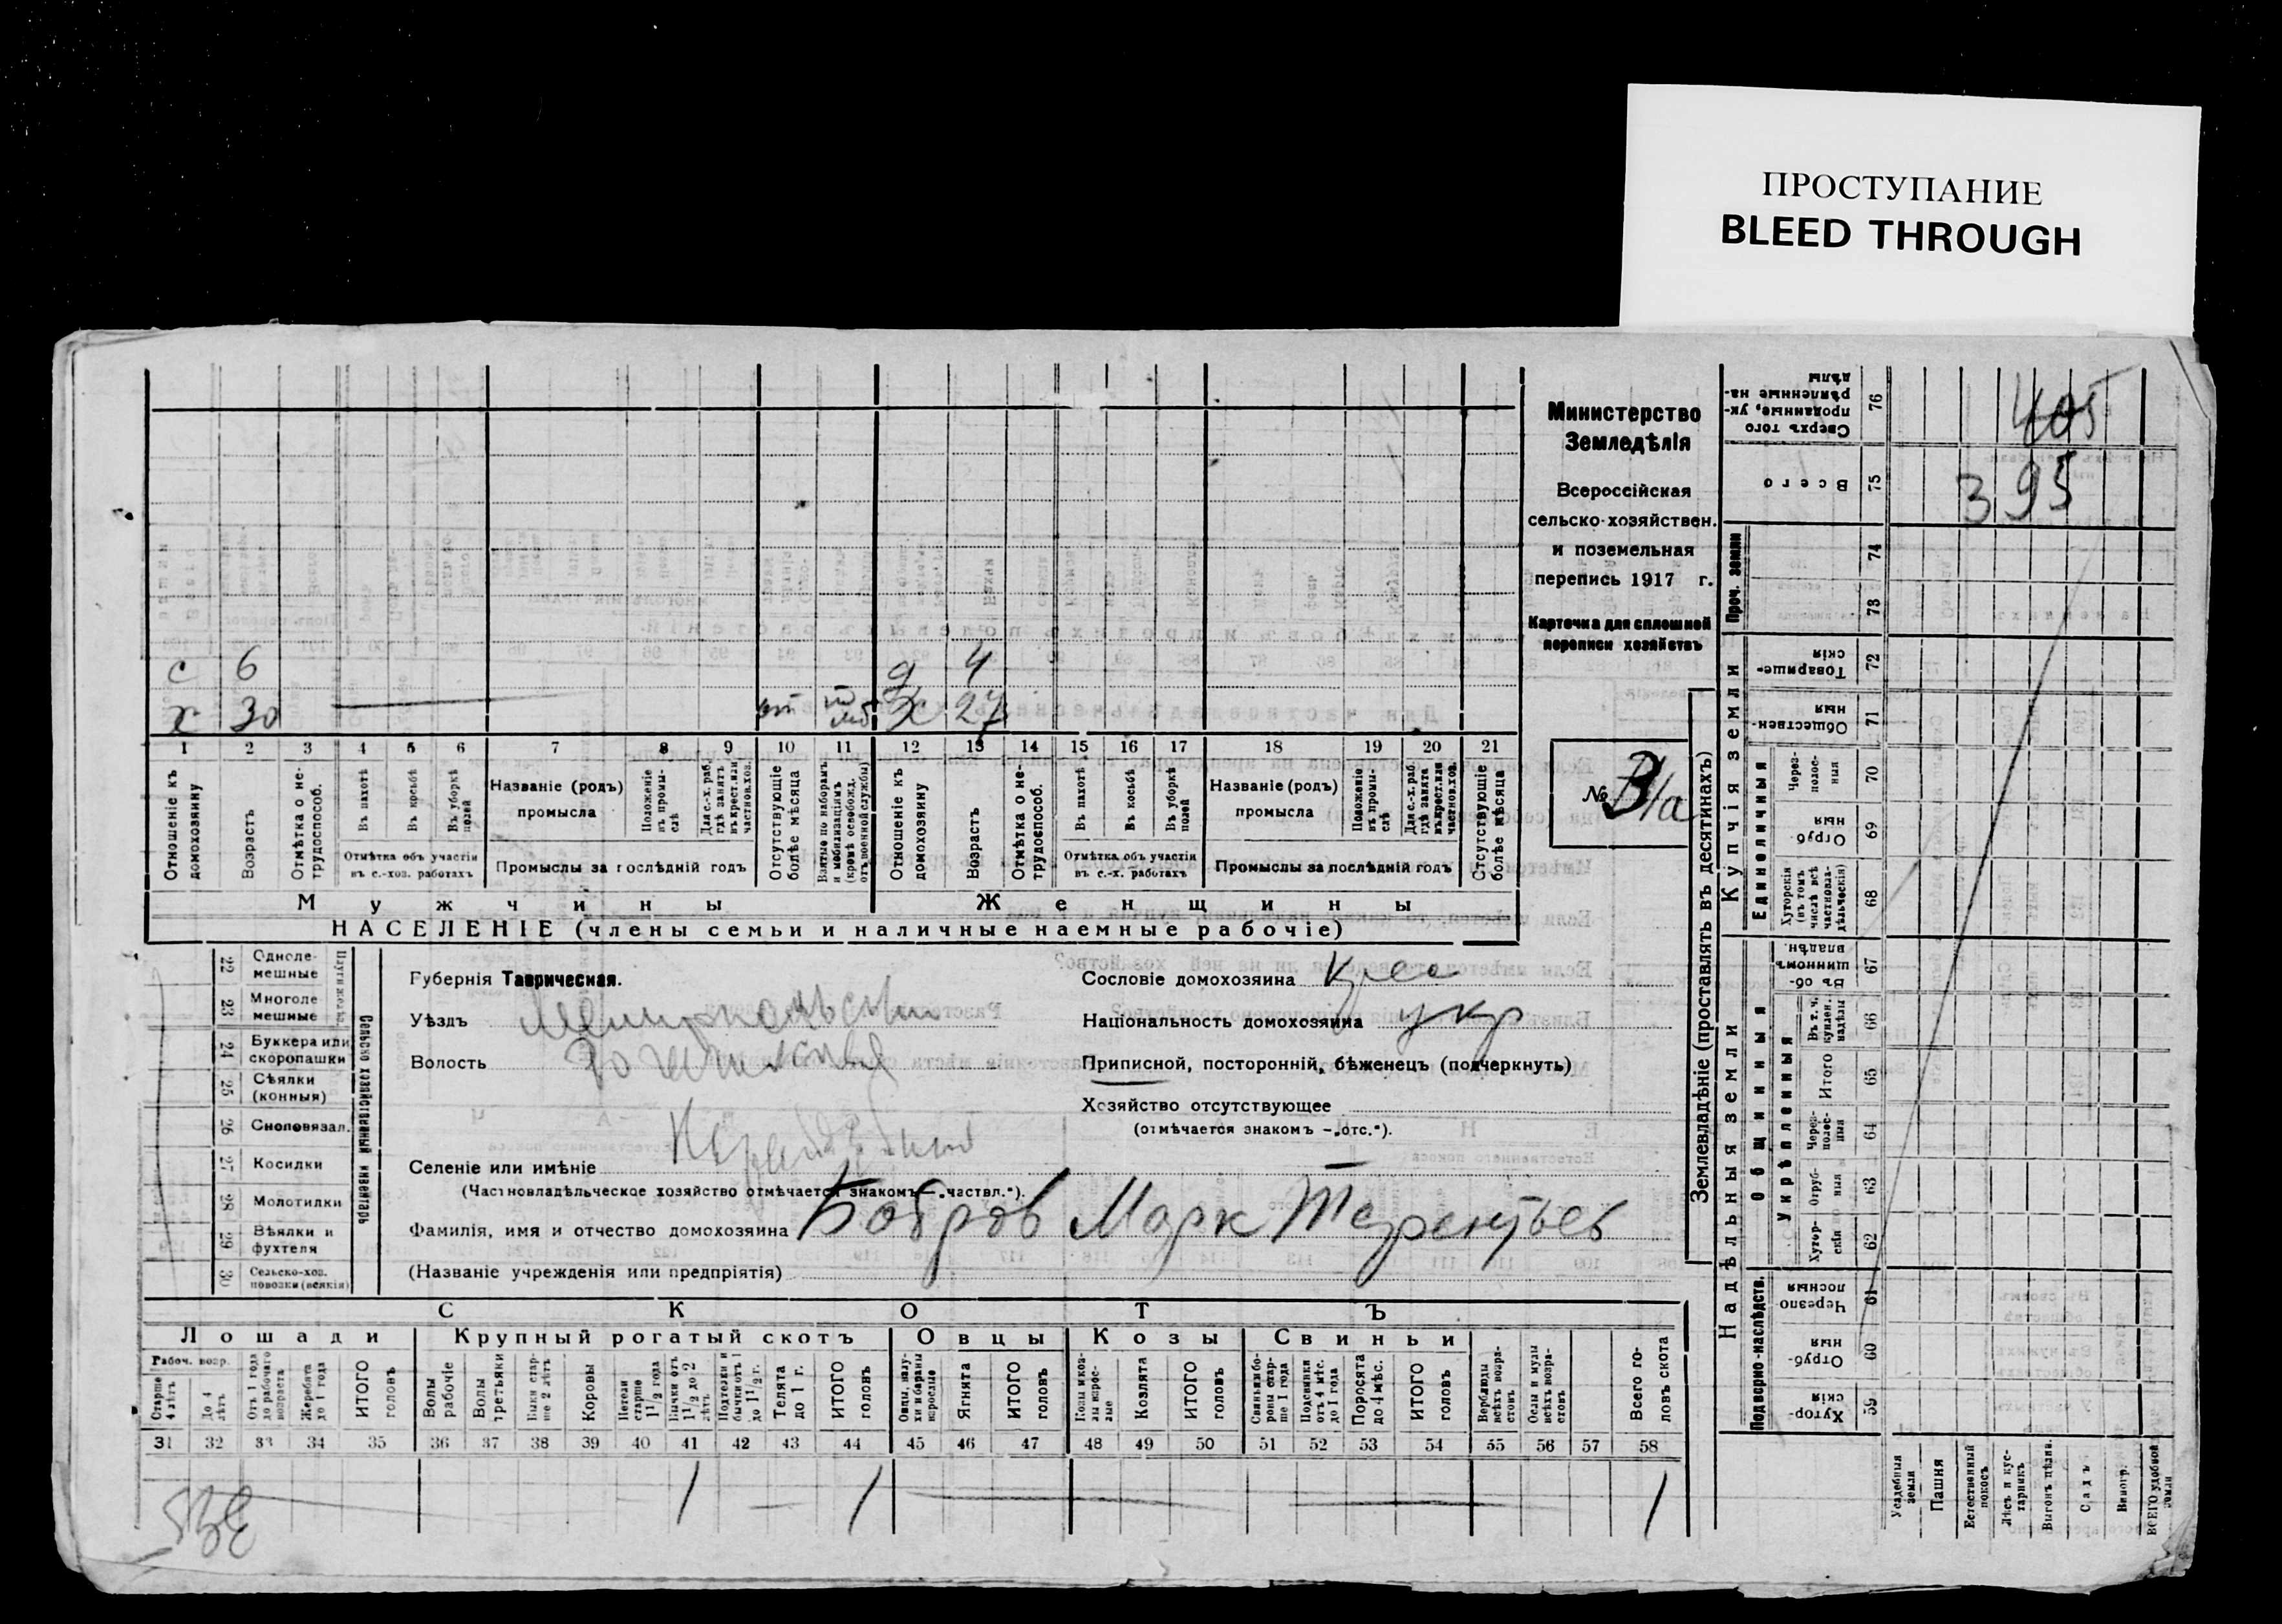 ПРОСТУПАНИЕ
BLEED THROUGH
с 6 д 4
х 30 от по моб ж 27
1 2 3 4 5 6 7 8 9 10 11 12 13 14 15 16 17 18 19 20 21
Отношеніе къ домохозяину
Возрастъ
Отмѣтка о не-трудоспособ.
Въ пахотѣ
Въ косьбѣ
Въ уборкѣ полей
Отмѣтка объ участіи въ с.-хоз. работахъ
Названіе (родъ) промысла
Положеніе въ промы-слѣ
Для с.-х. раб. гдѣ занятъ въ крест. или частновл. хоз.
Промыслы за послѣдній годъ
Отсутствующіе болѣе мѣсяца
Взятые по наборамъ и мобилизаціямъ (кромѣ освобожд. отъ военной службы)
Отношеніе къ домохозяину
Возрастъ
Отмѣтка о не-трудоспособ.
Въ пахотѣ
Въ косьбѣ
Въ уборкѣ полей
Отмѣтка объ участіи въ с.-х. работахъ
Названіе (родъ) промысла
Положеніе въ промы-слѣ
Для с.-х. раб. гдѣ занята въ крест. или частновл. хоз.
Промыслы за послѣдній годъ
Отсутствующіе болѣе мѣсяца
Мужчины Женщины
НАСЕЛЕНІЕ (члены семьи и наличные наемные рабочіе)
Министерство
Земледѣлія
Всероссійская
сельско-хозяйствен.
и поземельная
перепись 1917 г.
Карточка для сплошной
переписи хозяйствъ
№ 31/а
22 Одноле-мешные
23 Многоле мешные
24 Буккера или скоропашки
25 Сѣялки (конныя)
26 Сноповязал.
27 Косилки
28 Молотилки
29 Вѣялки и фухтеля
30 Сельско-хоз. повозки (всякія)
Сельско хозяйственный инвентарь
Губернія Таврическая.
Уѣздъ Мелитопольский
Волость
Селеніе или имѣніе
(Частновладѣльческое хозяйство отмѣчается знакомъ—„частвл.“).
Фамилія, имя и отчество домохозяина Бобров Марк Терентьев
(Названіе учрежденія или предпріятія)
Сословіе домохозяина
Національность домохозяина укр
Приписной, посторонній, бѣженецъ (подчеркнуть)
Хозяйство отсутствующее
(отмѣчается знакомъ —„отс.“).
СКОТЪ
Лошади Крупный рогатый скотъ Овцы Козы Свиньи
Рабоч. возр.
Старше 4 лѣтъ
До 4 лѣтъ
Отъ 1 года до рабочаго возраста
Жеребята до 1 года
ИТОГО головъ
Волы рабочіе
Волы третьяки
Быки стар-ше 2 лѣтъ
Коровы
Нетели старше 1 1/2 года
Бычки отъ 1 1/2 до 2 лѣтъ
Подтелки и бычки отъ 1 до 1 1/2 г.
Телята до 1 г.
ИТОГО головъ
Овцы, валу-хи и бараны взрослые
Ягнята
ИТОГО головъ
Козы и коз-лы взрос-лые
Козлята
ИТОГО головъ
Свиньи и бо-ровы стар-ше 1 года
Подсвинки отъ 4 мѣс. до 1 года
Поросята до 4 мѣс.
ИТОГО головъ
Верблюды всѣхъ возра-стовъ
Ослы и мулы всѣхъ возра-стовъ
Всего го-ловъ скота
31 32 33 34 35 36 37 38 39 40 41 42 43 44 45 46 47 48 49 50 51 52 53 54 55 56 57 58
1 1 1
Землевладѣніе (проставлять въ десятинахъ)
Надѣльныя земли Купчія земли
Подворно-наслѣдств. Общинныя Укрѣпленныя Единоличныя Проч. земли
76 Сверхъ того проданные, ук-рѣпленные на-дѣлы 405
75 Всего 395
74
73
72 Товарище-скія
71 Обществен-ныя
70 Через-полос-ныя
69 Отруб-ныя
68 Хуторскія (въ томъ числѣ всѣ частновла-дѣльческія)
67 Въ об-щинномъ владѣн.
66 Въ т. ч. куплен. надѣлы
65 Итого
64 Через-полос-ныя
63 Отруб-ныя
62 Хутор-скія
61 Черезпо-лосныя
60 Отруб-ныя
59 Хутор-скія
Усадебныя земли
Пашня
Естественный покосъ
Лѣсъ и кус-тарникъ
Выгонъ цѣлин.
Садъ
Виногр.
ВСЕГО удобной земли